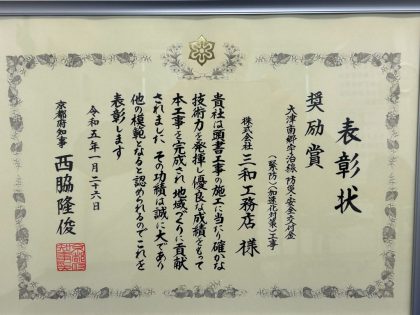 表彰状
奨励賞
大津南郷宇治線防災・安全交付金
(緊防)(加速化対策)工事
株式会社 三和工務店 様
貴社は頭書工事の施工に当たり確かな
技術力を発揮し優良な成績をもって
本工事を完成され地域づくりに貢献
されました その功績は誠に大であり
他の模範となると認められるのでこれを
表彰します
令和五年一月二十六日
京都府知事 西脇隆俊